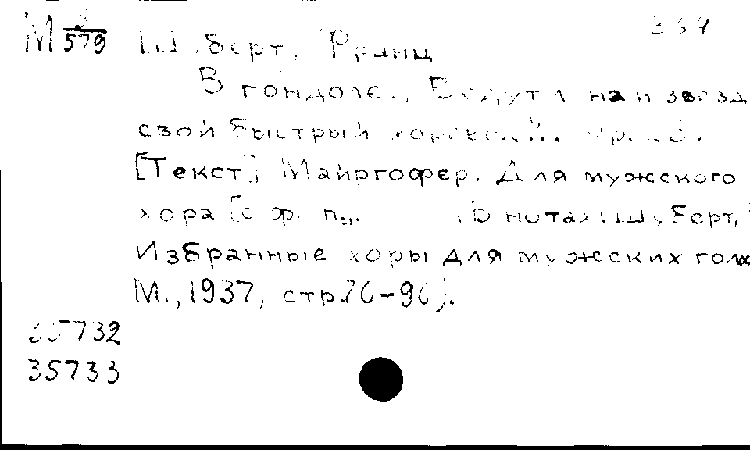 М 3/579
Шуберт, Франц
В гондоле. Ведут луна и звезд
свой быстрый хоровод.
[Текст]: Майргофер. Для мужского
хора [с ф. п.. В нотах: Шуберт,
Избранные хоры для мужских голо
М., 1937, стр. 76-96].
35732
35733